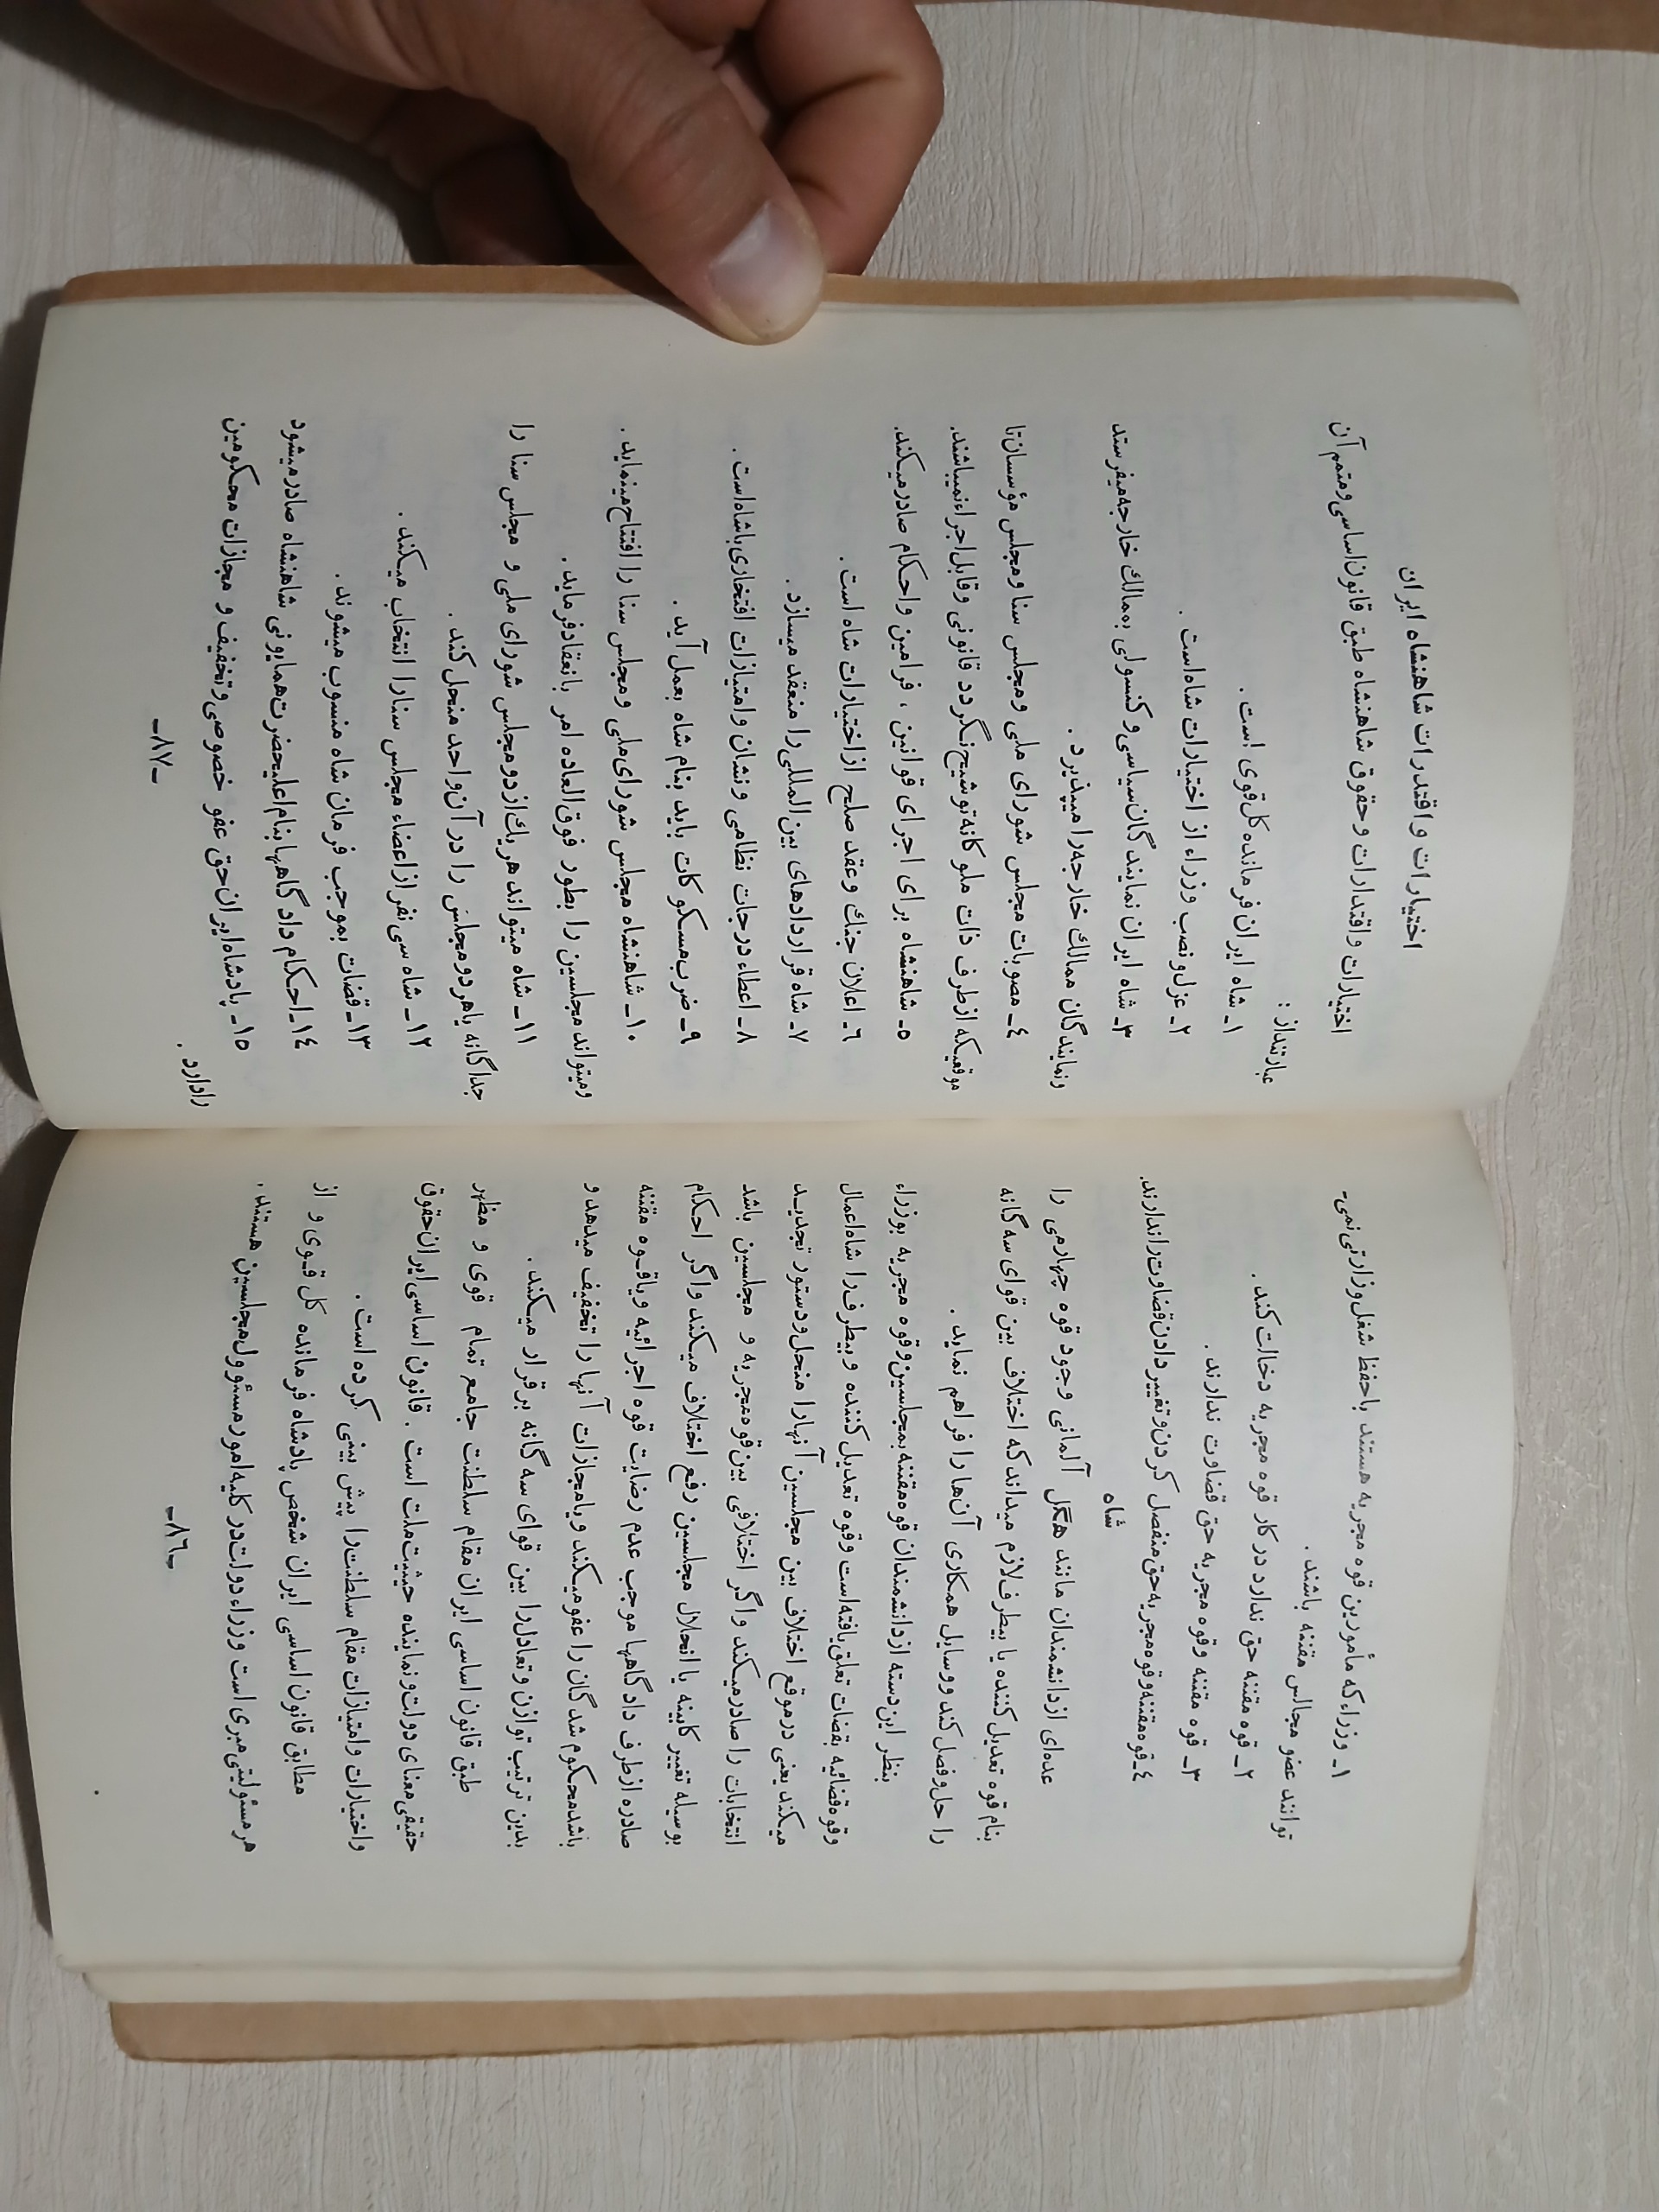 ۱ـ وزراء که مأمورین قوه مجریه هستند باحفظ شغل وزارتی نمی-
توانند عضو مجالس مقننه باشند .
۲ـ قوه مقننه حق ندارد در کار قوه مجریه دخالت کند .
۳ـ قوه مقننه وقوه مجریه حق قضاوت ندارند .
٤ـ قوه مقننه وقوه مجریه حق منفصل کردن وتغییر دادن قضاوت را ندارند.
شاه
عده‌ای از دانشمندان مانند هگل آلمانی وجود قوه چهارمی را
بنام قوه تعدیل کننده یا بیطرف لازم میداند که اختلاف بین قوای سه گانه
را حل وفصل کند ووسایل همکاری آن‌ها را فراهم نماید .
بنظر این دسته از دانشمندان قوه مقننه بمجلسین وقوه مجریه بوزراء
وقوه قضائیه بقضات تعلق یافته است وقوه تعدیل کننده وبیطرف را شاه اعمال
میکند یعنی درموقع اختلاف بین مجلسین آنهارا منحل ودستور تجدید
انتخابات را صادر میکند واگر اختلافی بین قوه مجریه و مجلسین باشد
بوسیله تغییر کابینه یا انحلال مجلسین رفع اختلاف میکند واگر احکام
صادره ازطرف دادگاهها موجب عدم رضایت قوه اجرائیه ویاقوه مقننه
باشد محکوم شدگان را عفو میکند ویامجازات آنها را تخفیف میدهد و
بدین ترتیب توازن وتعادل را بین قوای سه گانه برقرار میکند .
طبق قانون اساسی ایران مقام سلطنت جامع تمام قوی و مظهر
حقیقی معنای دولت ونماینده حیثیت ملت است . قانون اساسی ایران حقوق
واختیارات وامتیازات مقام سلطنت را پیش بینی کرده است .
مطابق قانون اساسی ایران شخص پادشاه فرمانده کل قوی و از
هر مسئولیتی مبری است وزراء دولت در کلیه امور مسئوول مجلسین هستند .
-۸٦-
اختیارات واقتدرات شاهنشاه ایران
اختیارات واقتدارات وحقوق شاهنشاه طبق قانون اساسی ومتمم آن
عبارتنداز :
۱ـ شاه ایران فرمانده کل قوی است .
۲ـ عزل ونصب وزراء از اختیارات شاه است .
۳ـ شاه ایران نمایندگان سیاسی وکنسولی بممالك خارجه میفرستد
ونمایندگان ممالك خارجه را میپذیرد .
٤ـ مصوبات مجلس شورای ملی ومجلس سنا ومجلس مؤسسان تا
موقعیکه ازطرف ذات ملوکانه توشیح نگردد قانونی وقابل اجراء نمیباشند.
٥ـ شاهنشاه برای اجرای قوانین ، فرامین واحکام صادر میکند.
٦ـ اعلان جنك وعقد صلح ازاختیارات شاه است .
۷ـ شاه قراردادهای بین المللی را منعقد میسازد .
۸ـ اعطاء درجات نظامی ونشان وامتیازات افتخاری باشاه است .
۹ـ ضرب مسکوکات باید بنام شاه بعمل آید .
۱۰ـ شاهنشاه مجلس شورای ملی ومجلس سنا را افتتاح مینماید .
ومیتواند مجلسین را بطور فوق العاده امر بانعقاد فرماید .
۱۱ـ شاه میتواند هریك ازدومجلس شورای ملی و مجلس سنا را
جداگانه یا هردومجلس را در آن واحد منحل کند .
۱۲ـ شاه سی نفر از اعضاء مجلس سنارا انتخاب میکند .
۱۳ـ قضات بموجب فرمان شاه منسوب میشوند .
۱٤ـ احکام دادگاهها بنام اعلیحضرت همایونی شاهنشاه صادر میشود
۱٥ـ پادشاه ایران حق عفو خصوصی وتخفیف و مجازات محکومین
رادارد .
-۸۷-